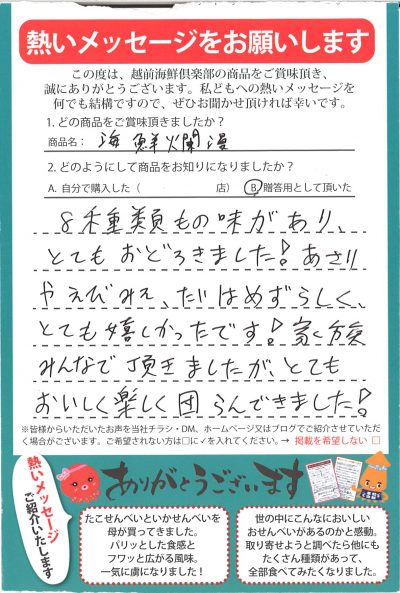 熱いメッセージをお願いします
この度は、越前海鮮倶楽部の商品をご賞味頂き、
誠にありがとうございます。私どもへの熱いメッセージを
何でも結構ですので、ぜひお聞かせ頂ければ幸いです。
1. どの商品をご賞味頂きましたか?
商品名: 海鮮爛漫
2. どのようにして商品をお知りになりましたか?
A. 自分で購入した ( 店) B. 贈答用として頂いた
8種類もの味があり、
とてもおどろきました! あさり
やえびみそ、たいはめずらしく、
とても嬉しかったです! 家族
みんなで頂きましたが、とても
おいしく楽しく団らんできました!
※皆様からいただいたお声を当社チラシ・DM、ホームページ又はブログでご紹介させていただ
く場合がございます。ご希望されない方は□に✓を入れてください。→ 掲載を希望しない □
熱いメッセージ
ご紹介いたします
ありがとうございます
たこせんべいといかせんべいを
母が買ってきました。
パリッとした食感と
フワッと広がる風味。
一気に虜になりました!
世の中にこんなにおいしい
おせんべいがあるのかと感動。
取り寄せようと調べたら他にも
たくさん種類があって、
全部食べてみたくなりました。